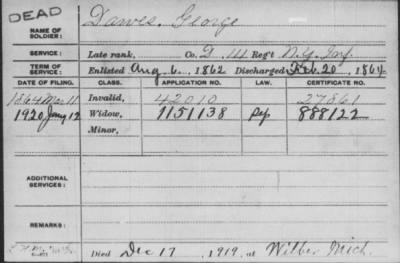 DEAD
NAME OF SOLDIER: Dawes, George
SERVICE: Late rank, Co. D, 14 Reg't N.Y. Inf.
TERM OF SERVICE: Enlisted Aug. 6, 1862 Discharged Feb. 20, 1864
DATE OF FILING. CLASS. APPLICATION NO. LAW. CERTIFICATE NO.
1864 Mar 11 Invalid, 42010 27861
1920 Jany 12 Widow, 1151138 888122
Minor,
ADDITIONAL SERVICES:
REMARKS:
Died Dec 17, 1919, at Wilber Mich.